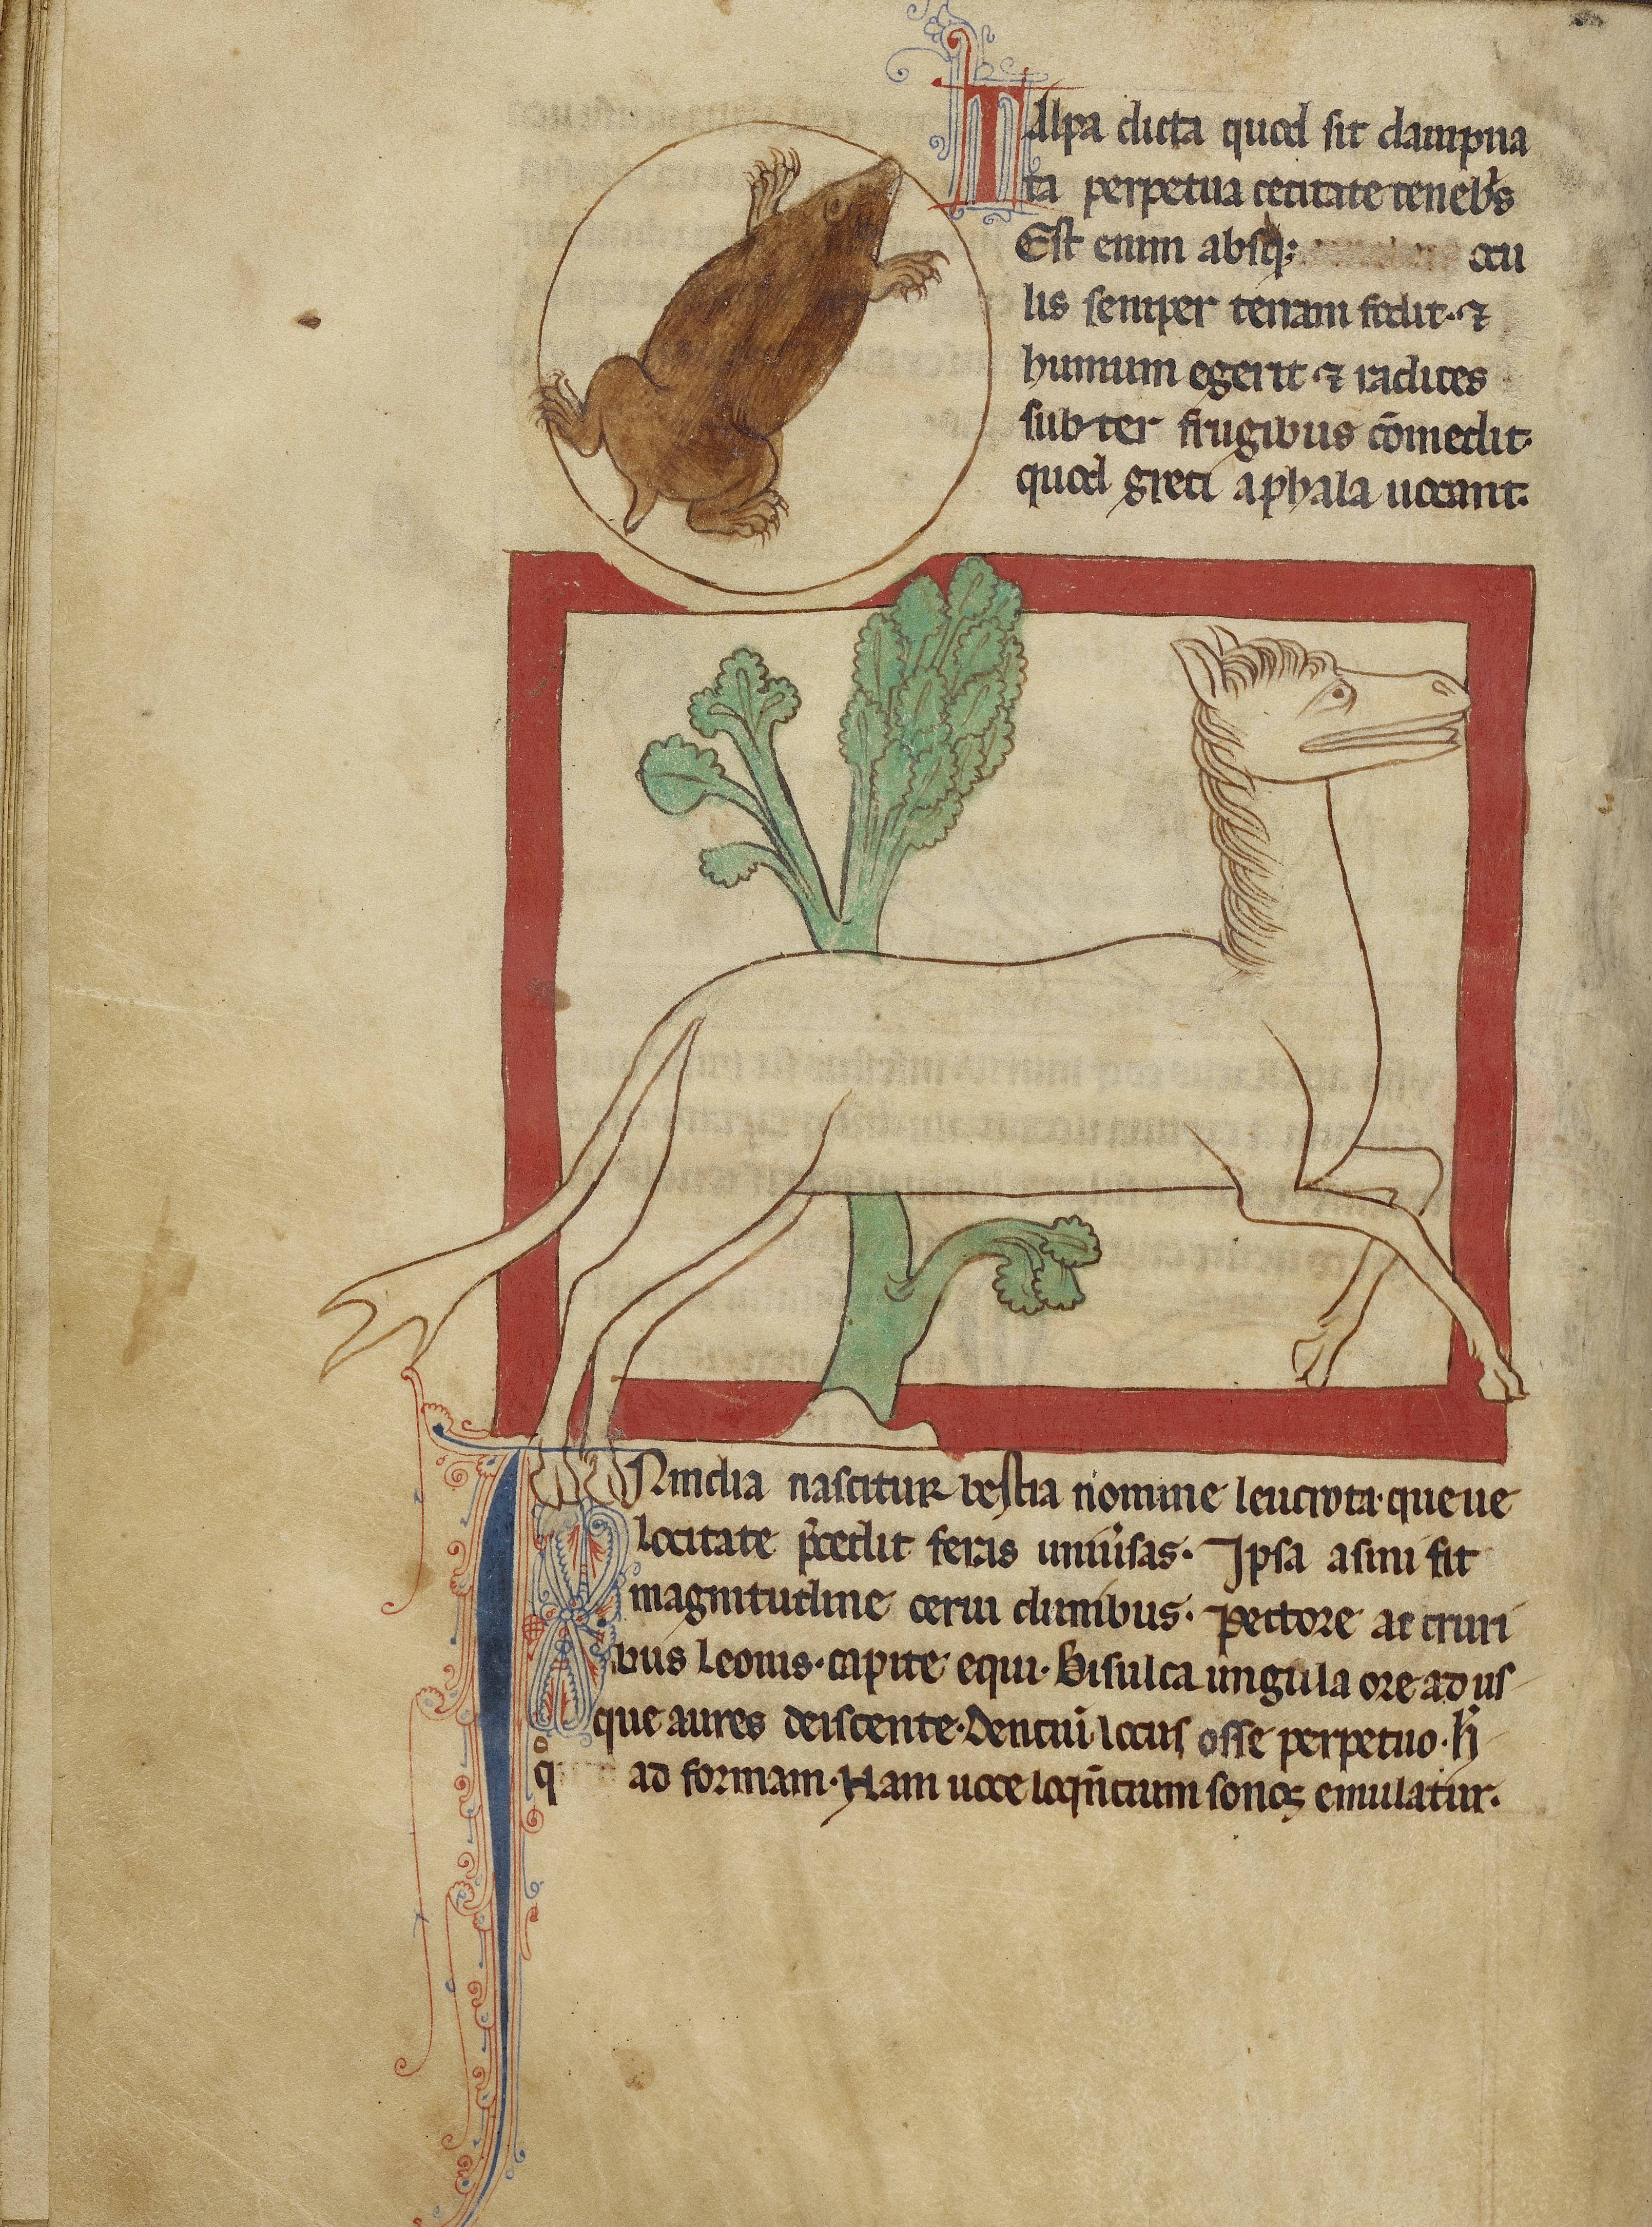 Talpa dicta quod sit dampna
ta perpetua cecitate tenebͥs
Est enim absq; ocu
lis semper terram fodit. ⁊
humum egerit ⁊ radices
subter frugibus cōmedit.
quod greci aphala uocant.
INindia nascitur bestia nomine leucrota. que ue
locitate p̄cedit feras uniu͛sas. Ipsa asini fit
magnitudine cerui clunibus. Pectore ac cruri
bus leonis. capite equi. Bisulca ungula ore ad us
que aures deiscente. Dentiū locus osse perpetuo. h̄
qͦ ad formam. Nam uoce loqn̄tium sonoꝝ emulatur.